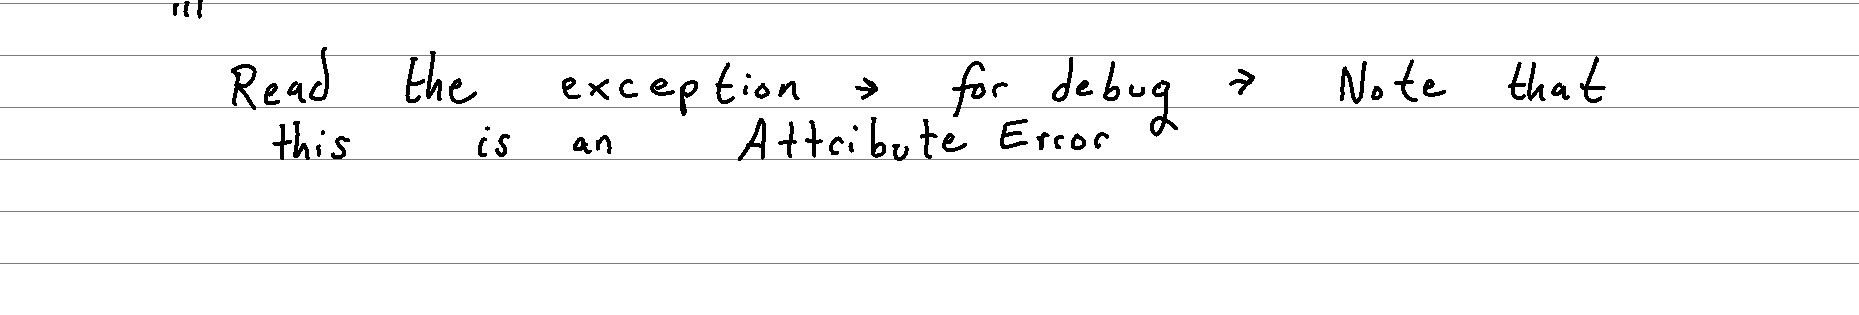 Read the exception → for debug → Note that
this is an Attribute Error